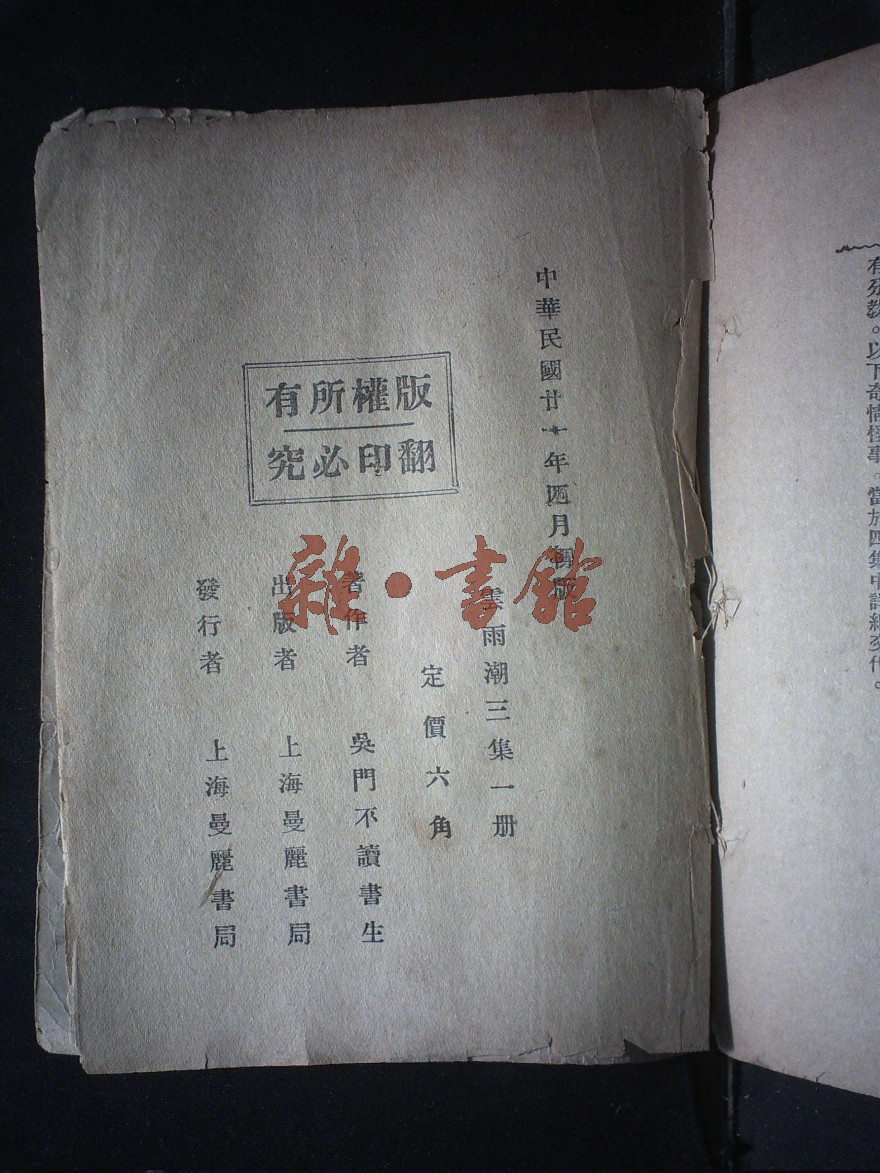 有殁教。以下奇情怪事。當於四集中詳細交代。
中華民國廿一年四月初版
雲雨潮三集一册
定價六角
著作者 吳門不讀書生
出版者 上海曼麗書局
發行者 上海曼麗書局
版權所有
翻印必究
雜·書館